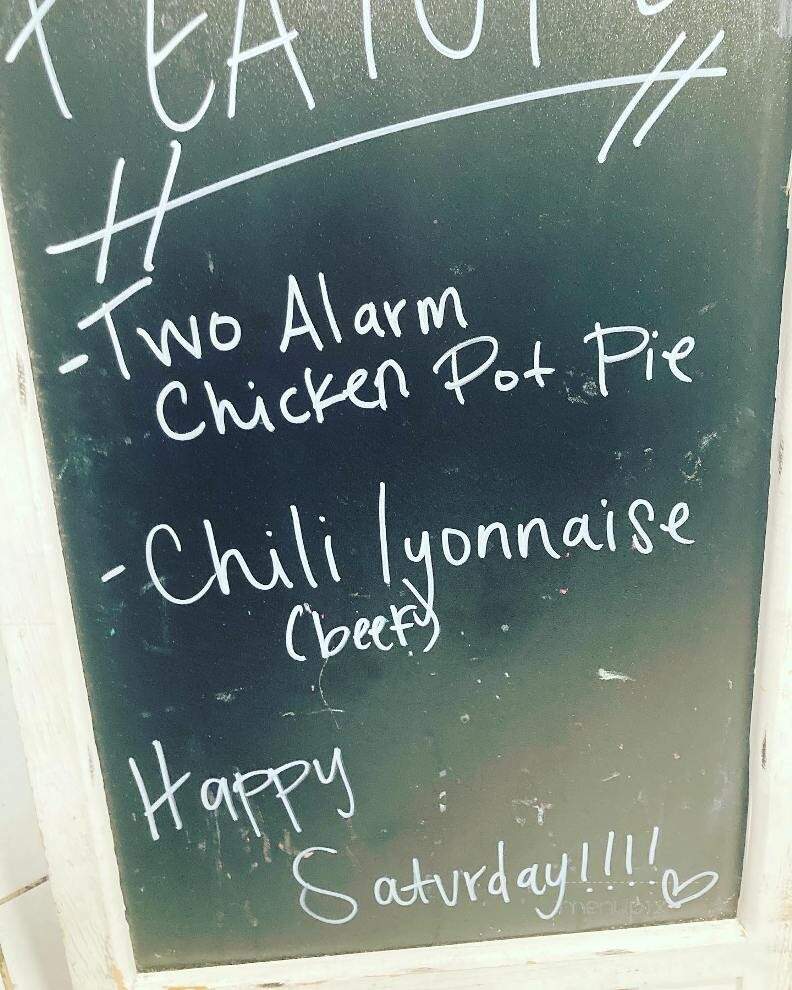 FEATURE
-Two Alarm
Chicken Pot Pie
-Chili lyonnaise
(beef)
Happy
Saturday!!!! ♡
menupix